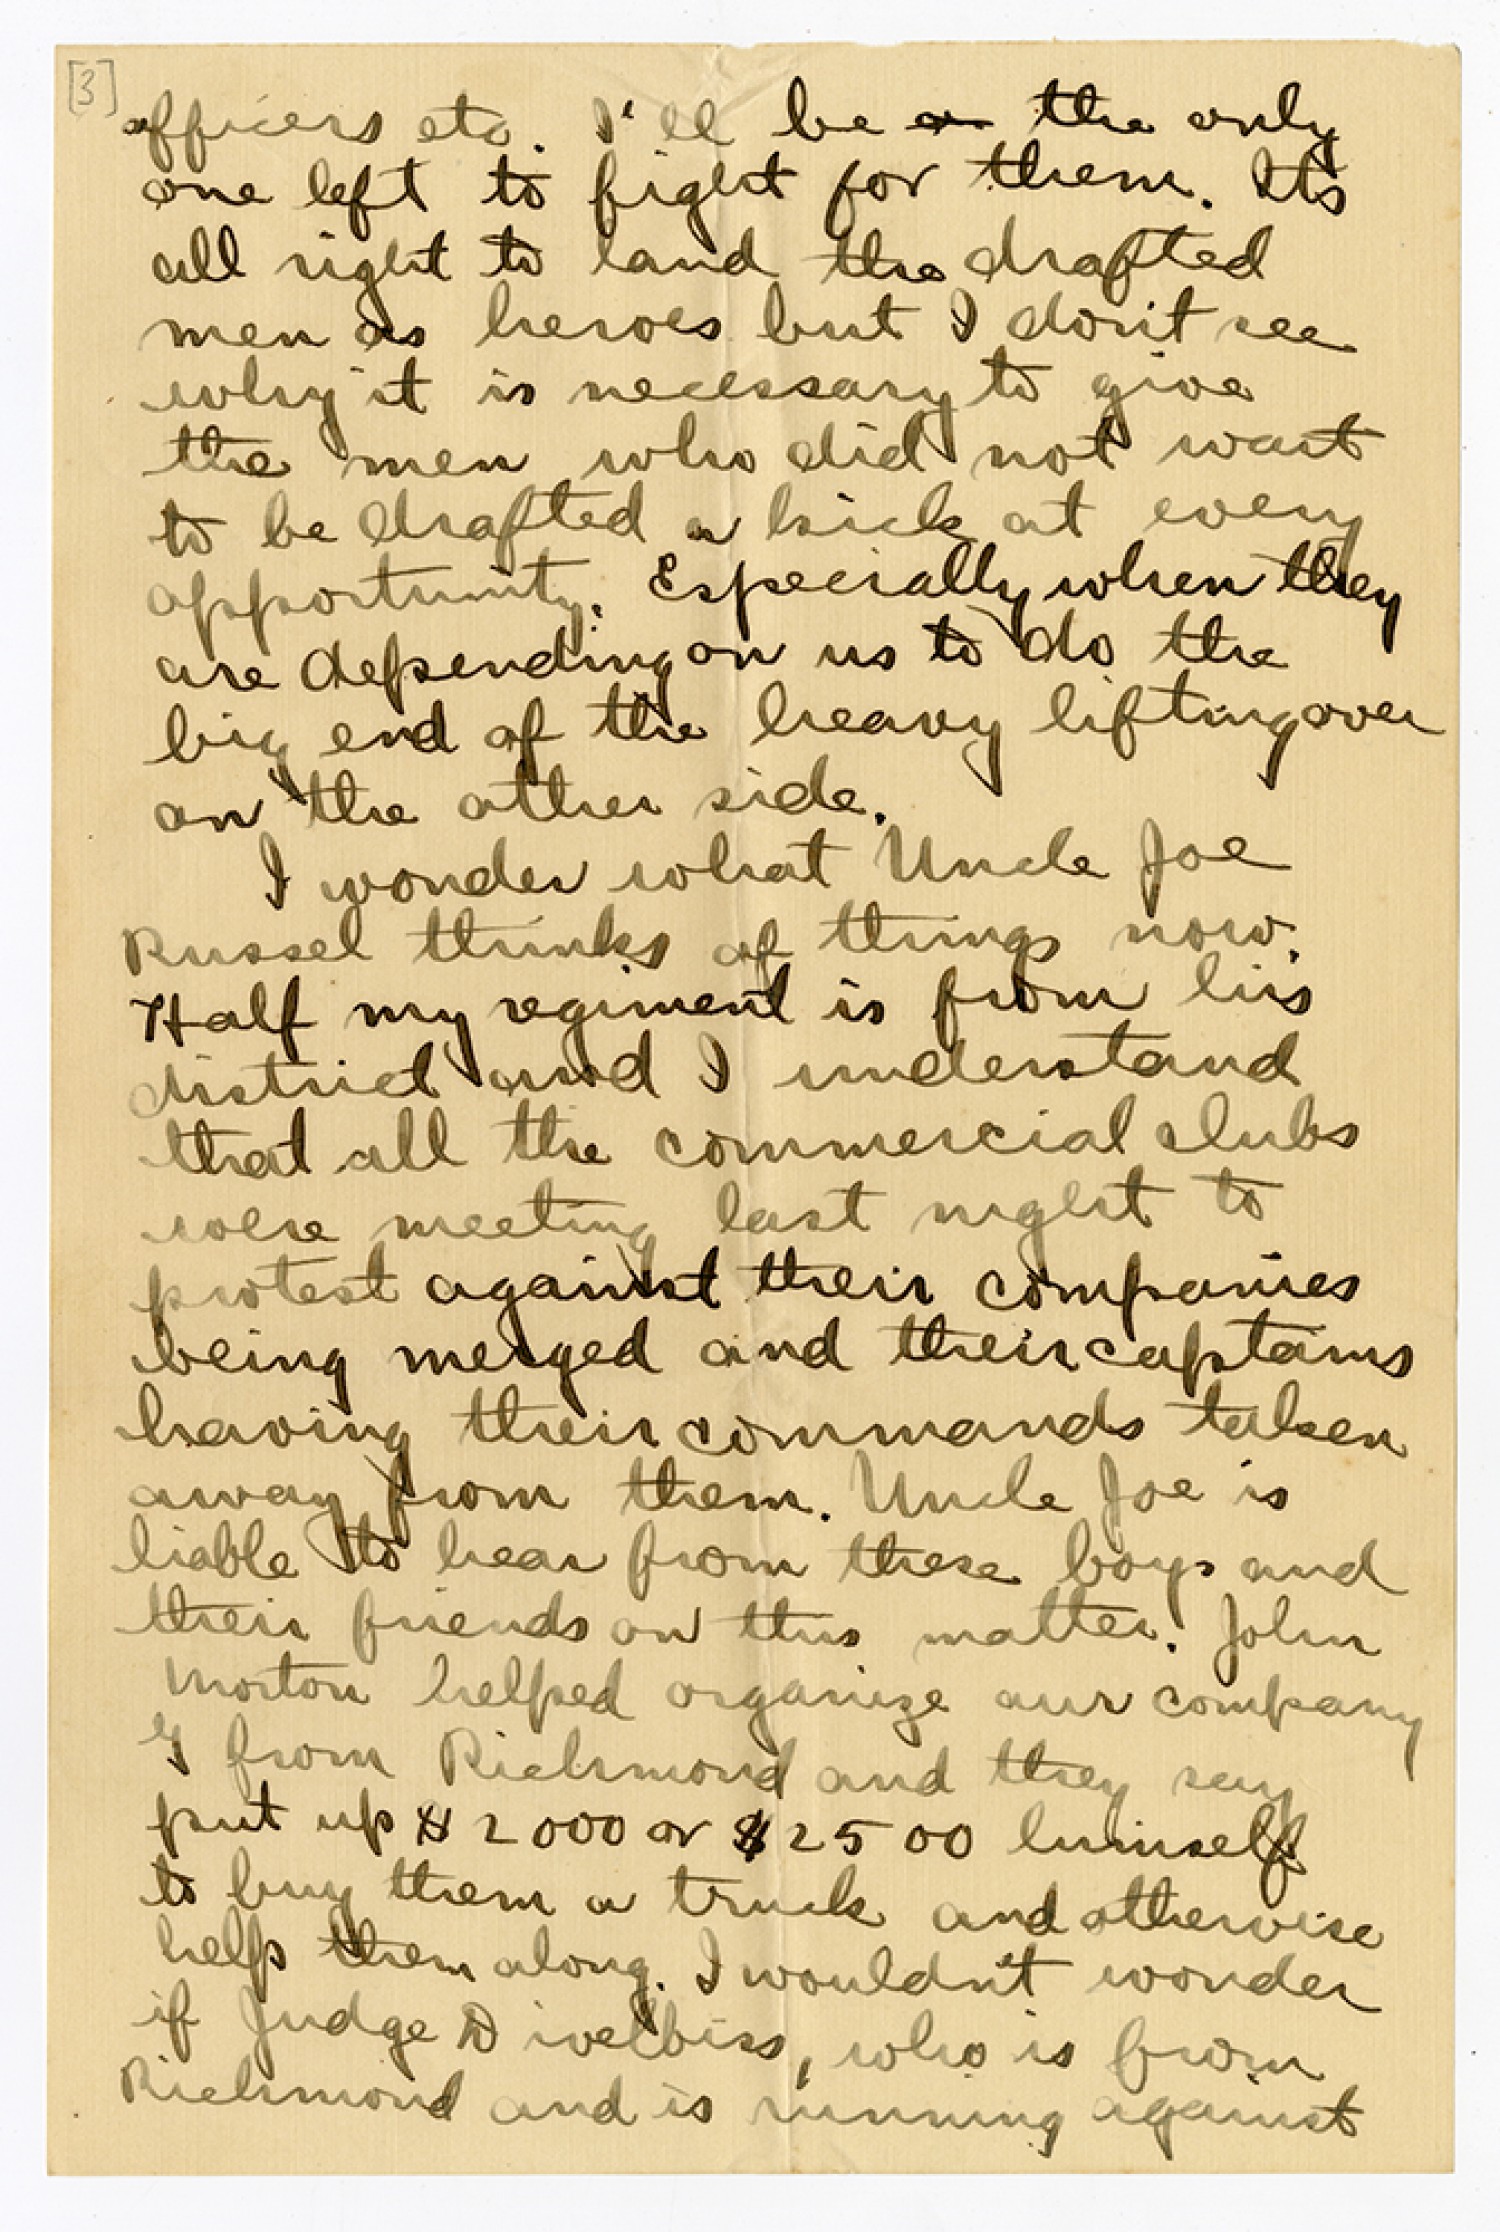 [3]
officers etc. I'll be a the only
one left to fight for them. Its
all right to laud the drafted
men as heroes but I don't see
why it is necessary to give
the men who did not wait
to be drafted a kick at every
opportunity. Especially when they
are depending on us to do the
big end of the heavy lifting over
on the other side.
I wonder what Uncle Joe
Russel thinks of things now.
Half my regiment is from his
district and I understand
that all the commercial clubs
were meeting last night to
protest against their companies
being merged and their captains
having their commands taken
away from them. Uncle Joe is
liable to hear from these boys and
their friends on this matter. John
Morton helped organize our company
from Richmond and they say
put up $2000 or $2500 himself
to buy them a truck and otherwise
help them along. I wouldn't wonder
if Judge Divelbiss, who is from
Richmond and is running against